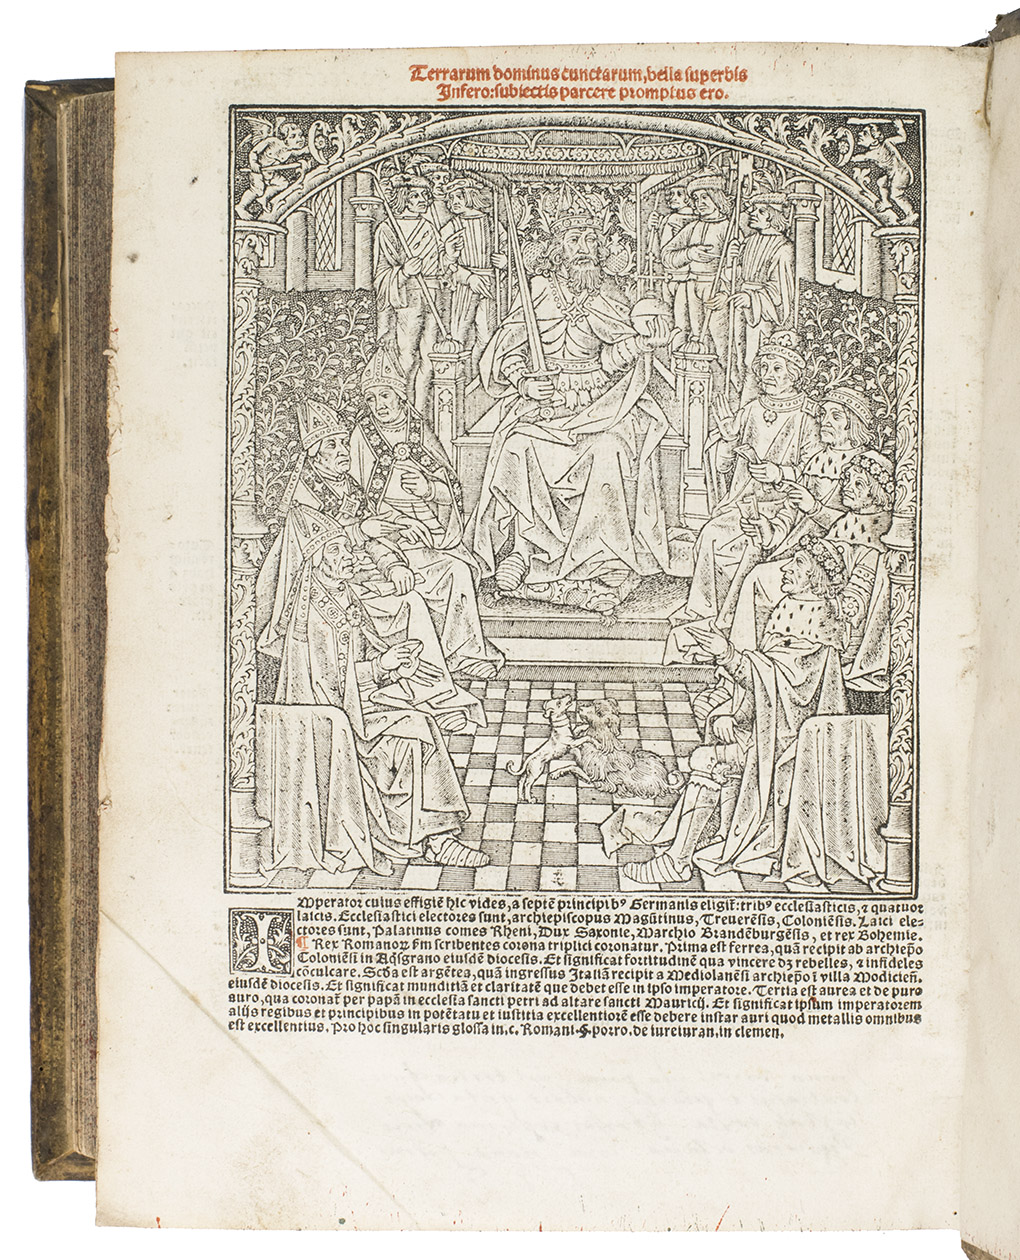 Terrarum dominus cunctarum, bella superbis
Infero: subiectis parcere promptus ero.
IMperator cuius effigiē hīc vides, a septē principibꝰ Germanis eligit̄: tribꝰ ecclesiasticis, ⁊ quatuor
laicis. Ecclesiastici electores sunt, archiepiscopus Magūtinus, Treuerēsis, Coloniēsis. Laici ele-
ctores sunt, Palatinus comes Rheni, Dux Saxonie, Marchio Brandēburgēsis, et rex Bohemie.
¶ Rex Romanoꝝ s̄m scribentes corona triplici coronatur. Prima est ferrea, quā recipit ab archiep̄o
Coloniēsi in Aq̄sgrano eiusdē diocesis. Et significat fortitudinē qua vincere dꝫ rebelles, ⁊ infideles
cōculcare. Scd̄a est argētea, quā ingressus Italiā recipit a Mediolanēsi archiep̄o ī villa Modicieñ.
eiusdē diocesis. Et significat munditiā et claritatē que debet esse in ipso imperatore. Tertia est aurea et de puro
auro, qua coronat̄ per papā in ecclesia sancti petri ad altare sancti Mauricij. Et significat ipsum imperatorem
alijs regibus et principibus in potētatu et iustitia excellentiorē esse debere instar auri quod metallis omnibus
est excellentius. Pro hoc singularis glossa in .c. Romani. §. porro. de iureiuran. in clemen.